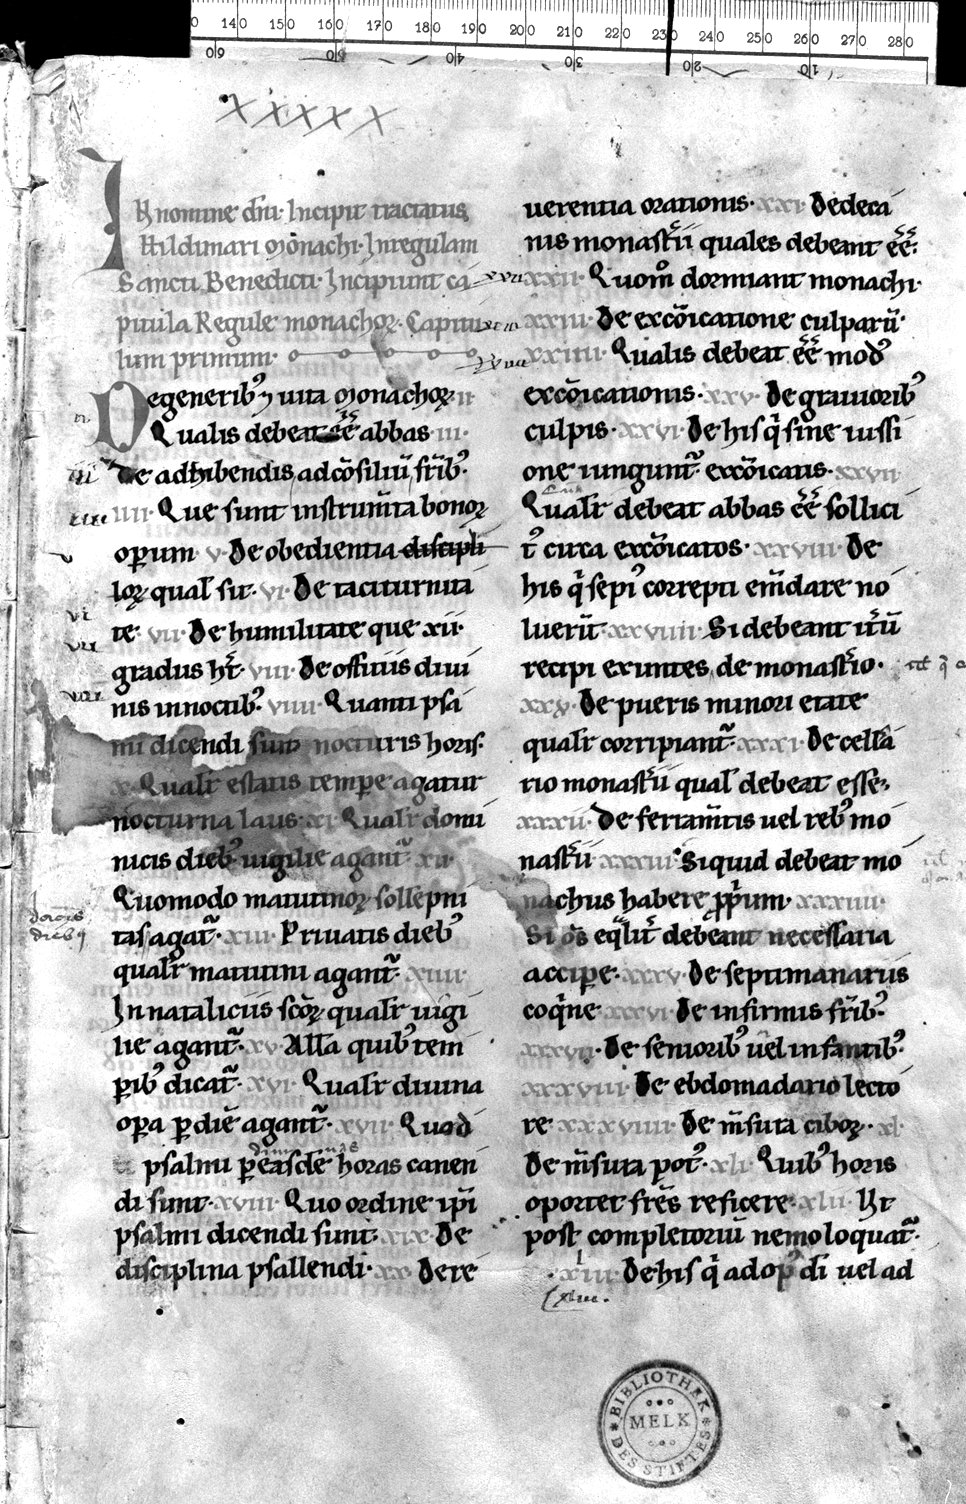 In nomine dn̄i. Incipit tractatus
Hildimari monachi. In regulam
Sancti Benedicti. Incipiunt ca
pitula Regule monachoꝝ. Capitu
lum primum.
De generibꝰ ⁊ uita monachoꝝ. ii
Qualis debeat ēē abbas. iii.
De adhibendis ad cōsiliū frībꝰ.
iiii. Que sunt instrum̄ta bonoꝝ
oꝑum. v. De obedientia discipli
loꝝ qual̄ sit. vi. De taciturnita
te. vii. De humilitate que xii.
gradus hꝫt. viii. De offitiis diui
nis in noctibꝰ. viiii. Quanti psa
mi dicendi sunt nocturis horis.
x. Qualr̄ estatis temꝑe agatur
nocturna laus. xi. Qualr̄ domi
nicis diebꝰ uigilie agant̄. xii.
Quomodo matutinoꝝ sollepni
tas agat̄. xiii. Priuatis diebꝰ
qualr̄ matutini agant̄. xiiii.
In nataliciis sc̄oꝝ qualr̄ uigi
lie agant̄. xv. All̄a quibꝰ tem
ꝑibꝰ dicat̄. xvi. Qualr̄ diuina
oꝑa ꝑ diē agant̄. xvii. Quod
psalmi ꝑ easdē horas canen
di sunt. xviii. Quo ordine ip̄i
psalmi dicendi sunt. xix. De
disciplina psallendi. xx. De re
uerentia orationis. xxi. De deca
nis monast̄ii quales debeant ēē.
xxii. Quom̊ dormiant monachi.
xxiii. De excōicatione culparū.
xxiiii. Qualis debeat ēē modꝰ
excōicationis. xxv. De grauioribꝰ
culpis. xxvi. De his q̄ sine iussi
one iungunt̄ excōicatis. xxvii
Qualr̄ debeat abbas ēē sollici
tꝰ circa excōicatos. xxviii. De
his q̄ sepiꝰ correpti em̄dare no
luerīt. xxviiii. Si debeant it̄ū
recipi exeuntes de monast̄io.
xxx. De pueris minori etate
qualr̄ corripiant̄. xxxi. De cella
rio monast̄ii qual̄ debeat esse.
xxxii. De ferram̄tis uel rebꝰ mo
nast̄ii xxxiii. Si quid debeat mo
nachus habere ꝓp̄um. xxxiiii.
Si oēs eq̄lit̄ debeant necessaria
acciꝑe. xxxv. De septimanariis
coq̄ne. xxxvi. De infirmis fr̄ibꝰ.
xxxvii. De senioribꝰ uel infantibꝰ.
xxxviii. De ebdomadario lecto
re. xxxviiii. De m̄sura ciboꝝ. xl.
De m̄sura potꝰ. xli. Quibꝰ horis
oportet frēs reficere. xlii. Ut
post completoriū nemo loquat̄.
xliii. De his q̄ ad opꝰ dī uel ad
xliii.
BIBLIOTHEK DES STIFTES
MELK